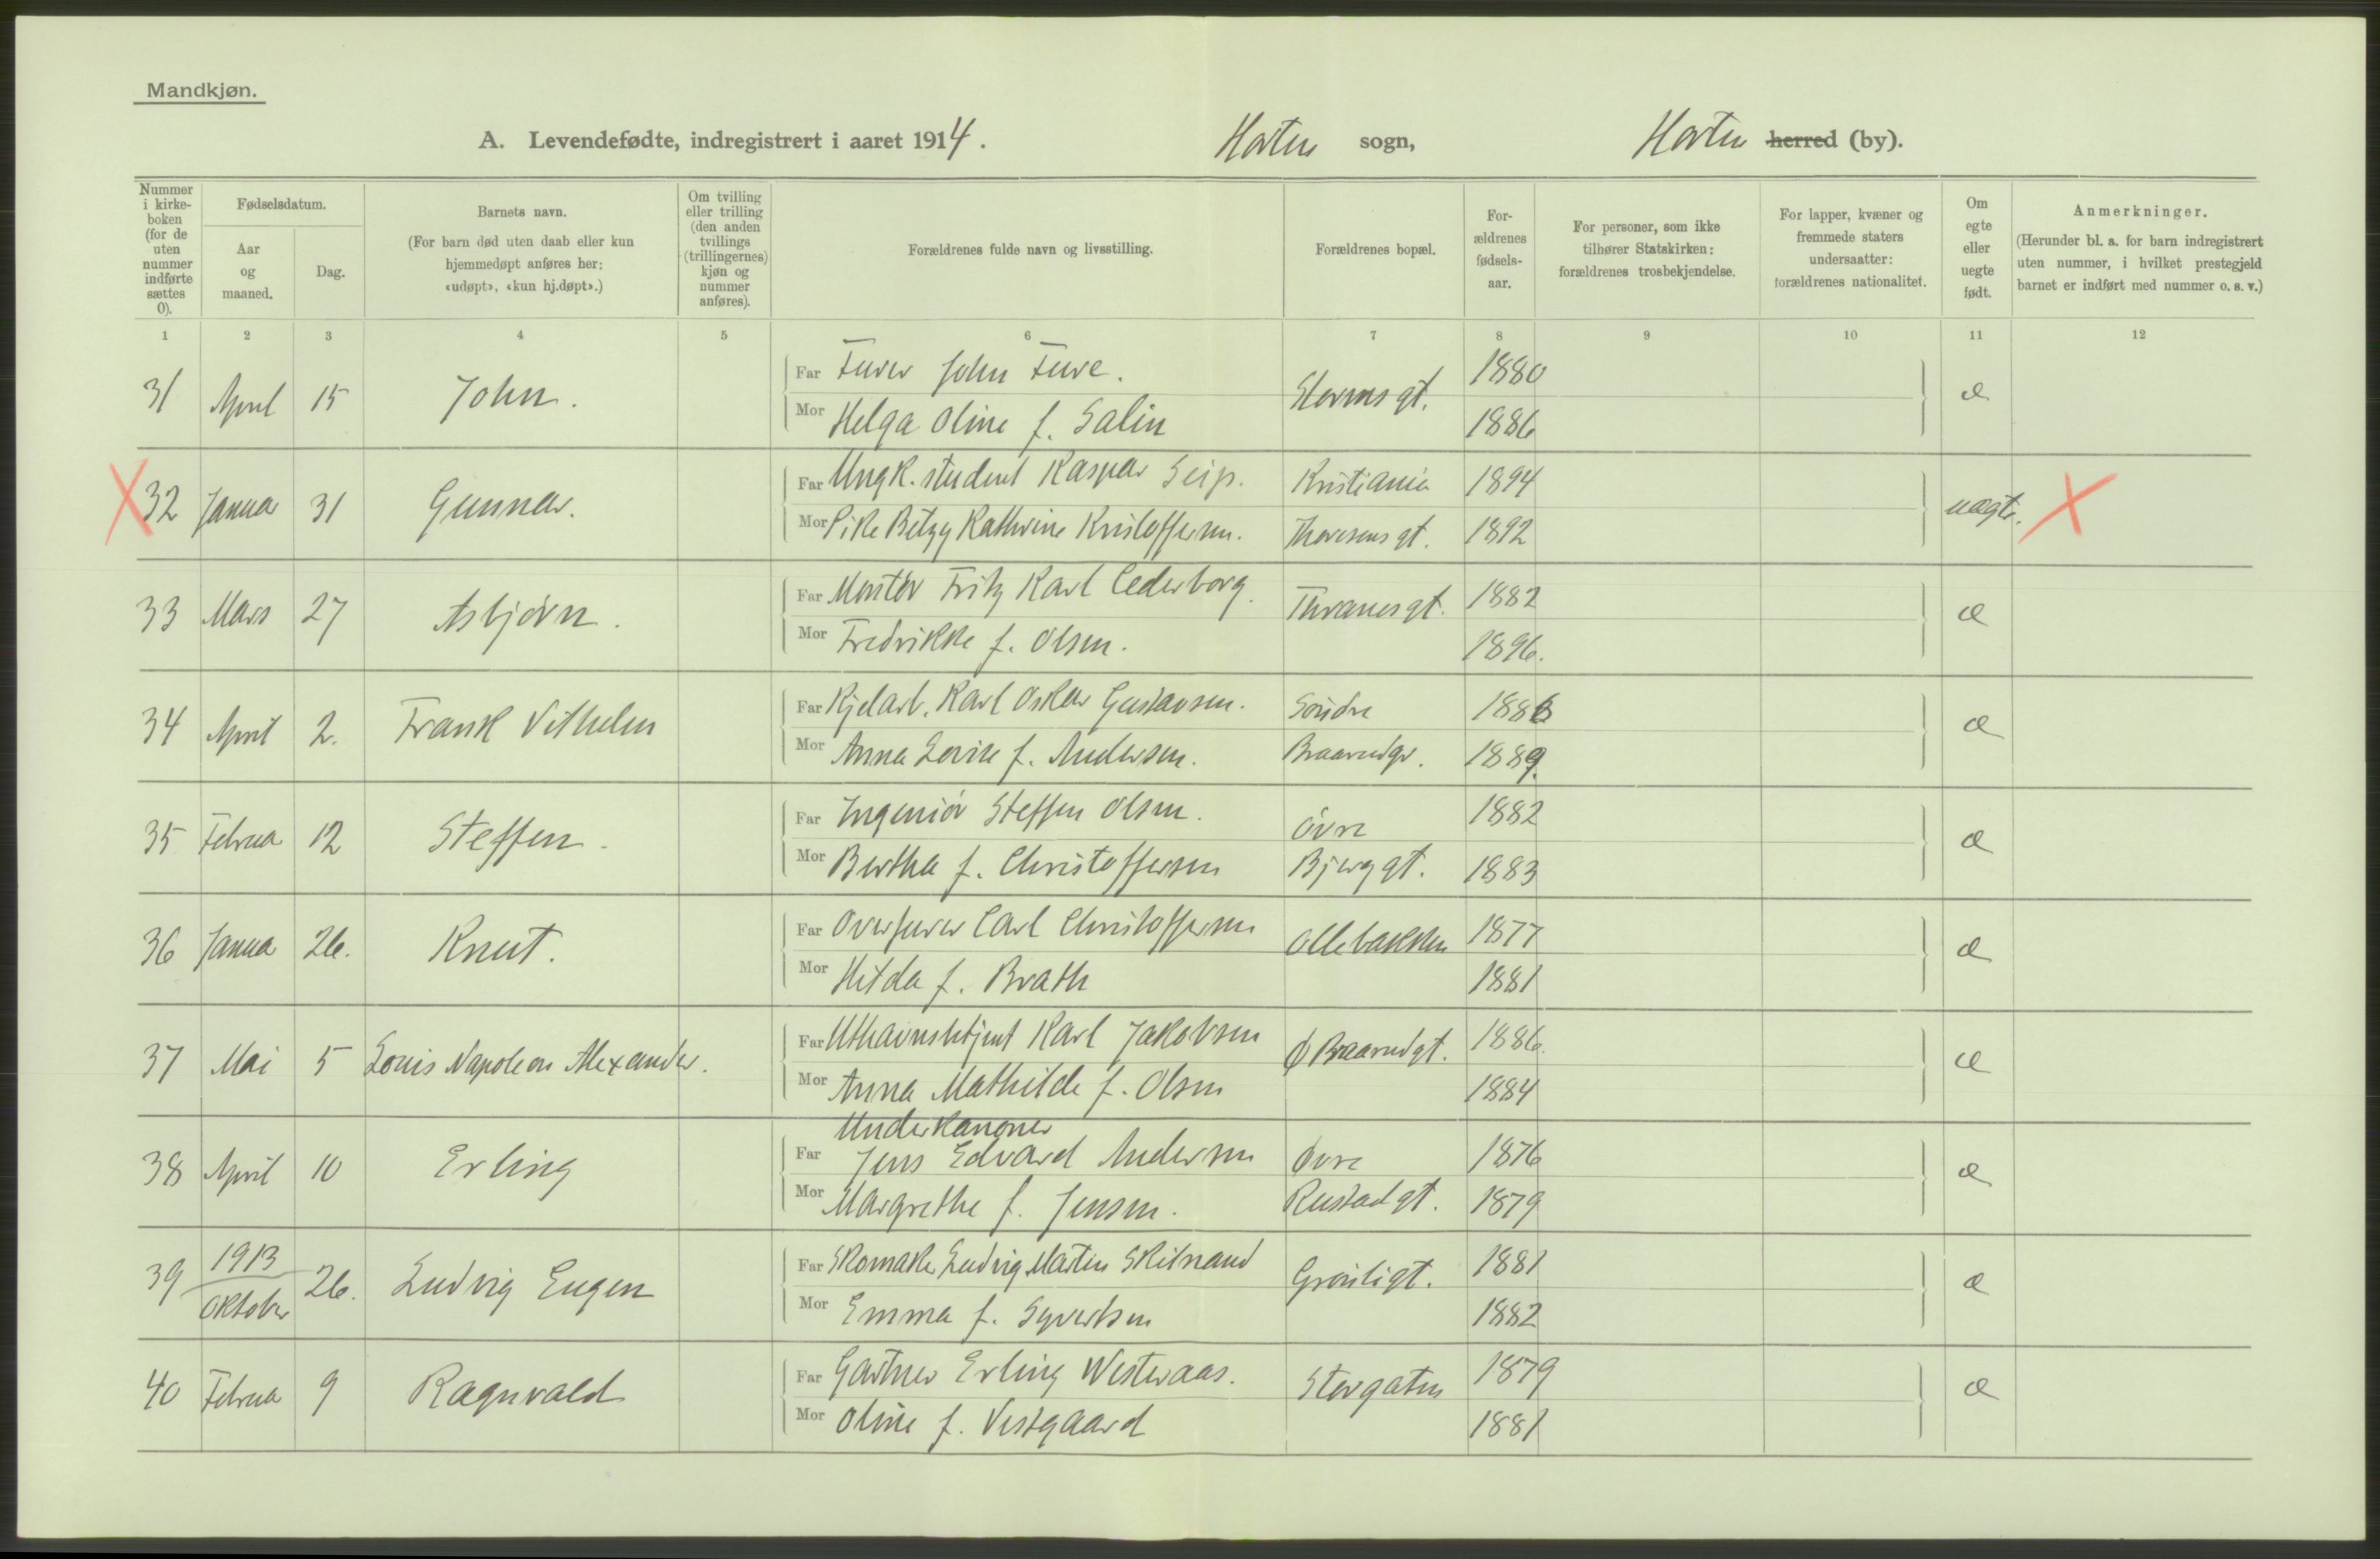 Mandkjøn.
A. Levendefødte, indregistrert i aaret 1914. Horten sogn, Horten herred (by).
Nummer i kirke-boken (for de uten nummer indførte sættes 0).
Fødselsdatum.
Aar og maaned.
Dag.
Barnets navn.
(For barn død uten daab eller kun hjemmedøpt anføres her: «udøpt», «kun hj.døpt».)
Om tvilling eller trilling (den anden tvillings (trillingernes) kjøn og nummer anføres).
Forældrenes fulde navn og livsstilling.
Forældrenes bopæl.
For-ældrenes fødsels-aar.
For personer, som ikke tilhører Statskirken: forældrenes trosbekjendelse.
For lapper, kvæner og fremmede staters undersaatter: forældrenes nationalitet.
Om egte eller uegte født.
Anmerkninger.
(Herunder bl. a. for barn indregistrert uten nummer, i hvilket prestegjeld barnet er indført med nummer o. s. v.)
1 2 3 4 5 6 7 8 9 10 11 12
31 April 15 John. Far Furer John Fure. Stormsgt. 1880 æ
Mor Helga Oline f. Salin 1886
32 Janua 31 Gunnar. Far Ungk. student Kaspar Seip. Kristiania 1894 uægte.
Mor Pike Betzy Kathrine Kristoffersen. Thoresensgt. 1892
33 Mars 27 Asbjørn. Far Montør Fritz Karl Cederborg. Thranesgt. 1882 æ
Mor Fredrikke f. Olsen. 1896.
34 April 2. Frank Vilhelm Far Kjelarb. Karl Oskar Gustavsen. Søndre 1886 æ
Mor Anna Lovise f. Andersen. Braarudgt. 1889.
35 Februa 12 Steffen. Far Ingeniør Steffen Olsen. Øvre 1882 æ
Mor Bertha f. Christoffersen Bjerggt. 1883
36 Janua 26. Knut. Far Overfurer Carl Christoffersen Ollebakken 1877 æ
Mor Hilda f. Brath 1881
37 Mai 5 Louis Napoleon Alexander. Far Karl Jakobsen Ø Braarudgt. 1886. æ
Mor Anna Mathilde f. Olsen 1884
38 April 10 Erling Far Underkanoner
Jens Edvard Andersen Øvre 1876 æ
Mor Margrethe f. Jensen. Rustadgt. 1879
39 1913 Oktober 26. Ludvig Eugen Far Skomaker Ludvig Martin Skilnand Grønligt. 1881 æ
Mor Emma f. Syvertsen 1882
40 Februa 9 Ragnvald Far Gartner Erling Westeraas. Storgaten 1879 æ
Mor Oline f. Vestgaard 1881